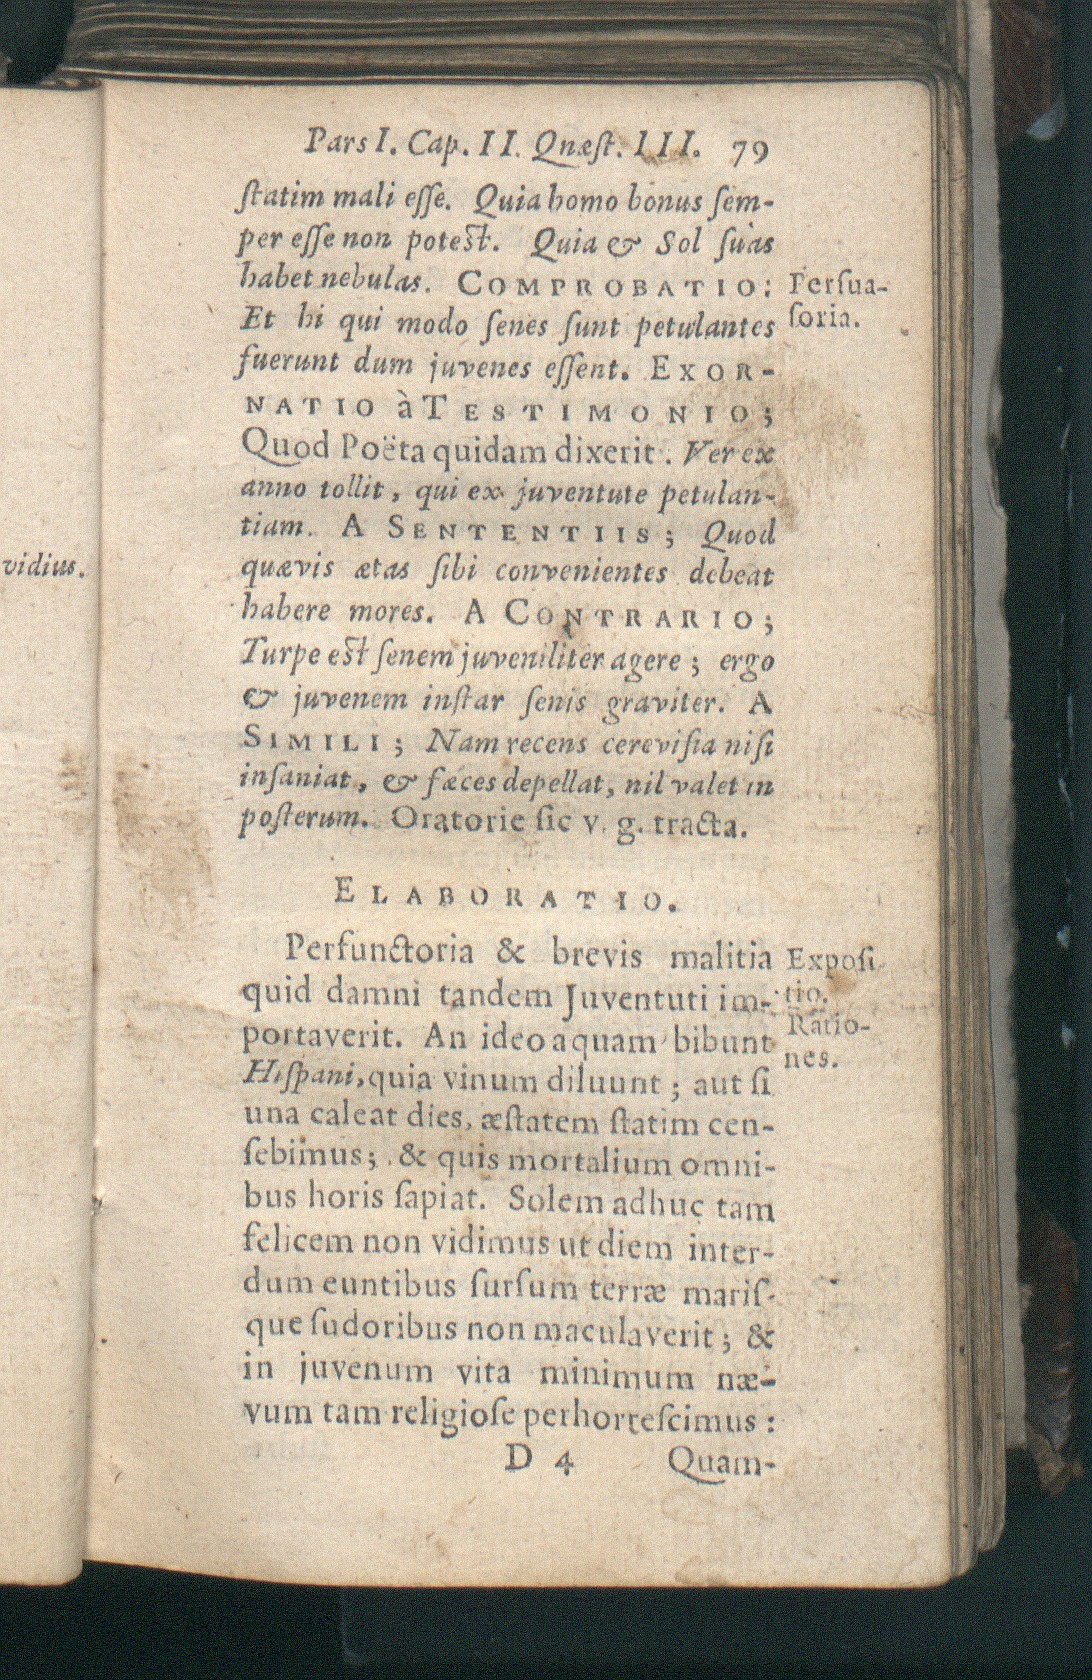 Pars I. Cap. II. Quæſt. III. 79
ſtatim mali eſſe. Quia homo bonus ſem-
per eſſe non poteſt. Quia & Sol ſuas
habet nebulas. COMPROBATIO:
Perſua-
ſoria.
Et hi qui modo ſenes ſunt petulantes
fuerunt dum juvenes eſſent. EXOR-
NATIO à TESTIMONIO;
Quod Poëta quidam dixerit. Ver ex
anno tollit, qui ex juventute petulan-
tiam. A SENTENTIIS; Quod
quævis ætas ſibi convenientes debeat
vidius.
habere mores. A CONTRARIO;
Turpe eſt ſenem juveniliter agere; ergo
& juvenem inſtar ſenis graviter. A
SIMILI; Nam recens cereviſia niſi
inſaniat, & fæces depellat, nil valet in
poſterum. Oratorie ſic v. g. tracta.
ELABORATIO.
Perfunctoria & brevis malitia
Expoſi
tio.
quid damni tandem Juventuti im-
portaverit. An ideo aquam bibunt
Ratio-
nes.
Hiſpani, quia vinum diluunt; aut ſi
una caleat dies, æſtatem ſtatim cen-
ſebimus; & quis mortalium omni-
bus horis ſapiat. Solem adhuc tam
felicem non vidimus ut diem inter-
dum euntibus ſurſum terræ mariſ-
que ſudoribus non maculaverit; &
in juvenum vita minimum næ-
vum tam religioſe perhorreſcimus:
D 4 Quam-